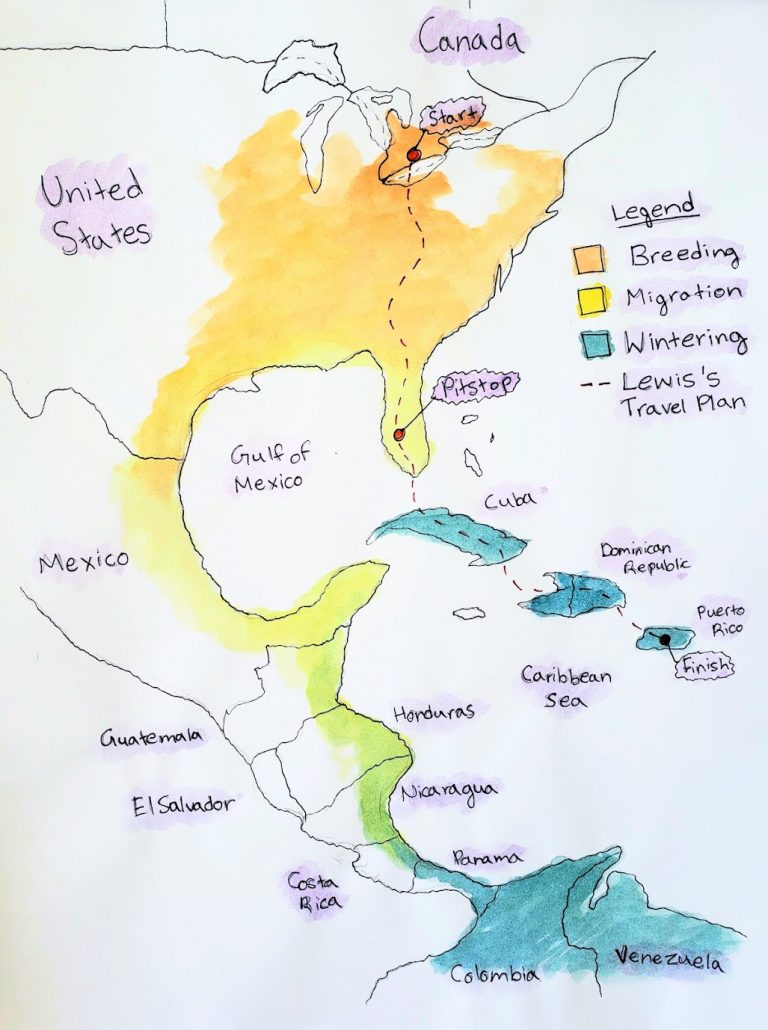 Canada
Start
United
States
Legend
Breeding
Migration
Wintering
Lewis's
Travel Plan
Pitstop
Gulf of
Mexico
Cuba
Mexico
Dominican
Republic
Puerto
Rico
Finish
Caribbean
Sea
Honduras
Guatemala
Nicaragua
El Salvador
Panama
Costa
Rica
Venezuela
Colombia